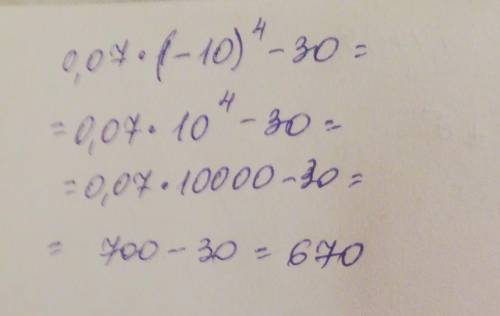 0,07 · (-10)⁴ - 30 =
= 0,07 · 10⁴ - 30 =
= 0,07 · 10000 - 30 =
= 700 - 30 = 670